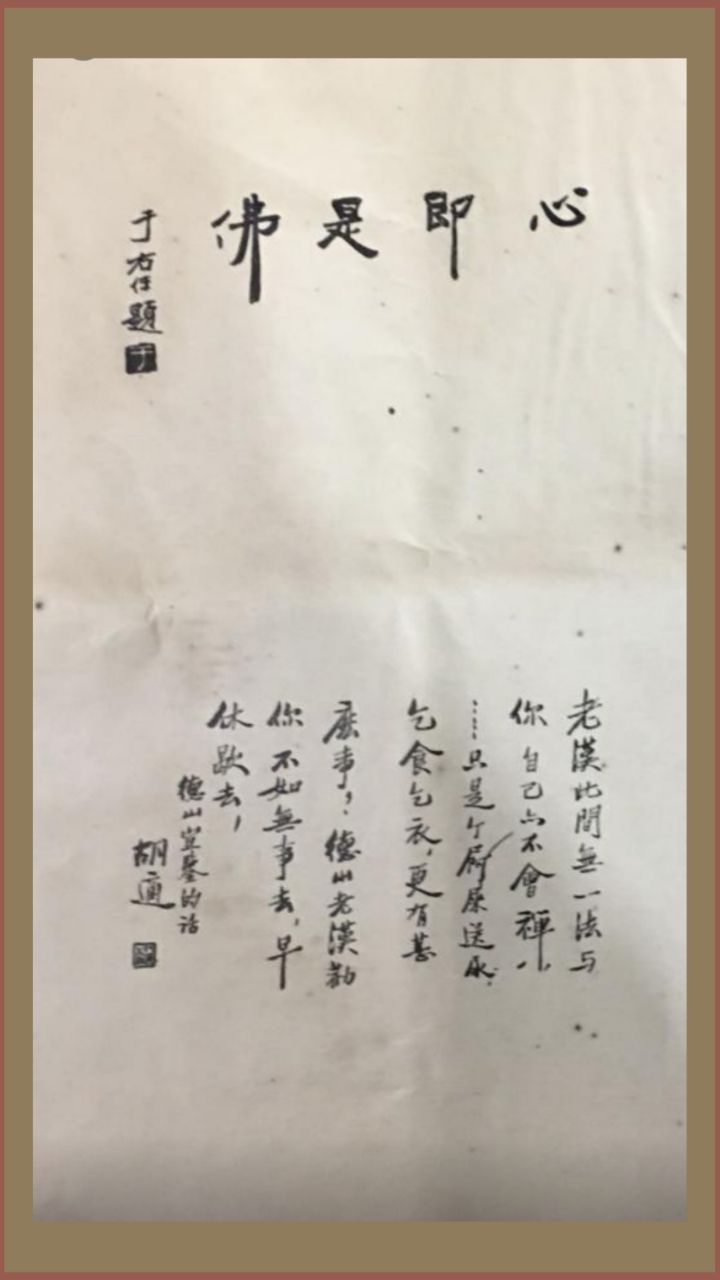 心即是佛
于右任題
老漢此間無一法与
你自己亦不會禪……
……只是个屙屎送尿，
乞食乞衣，更有甚
麽事？德山老漢勸
你不如無事去，早
休歇去，
德山宣鑒的話
胡適